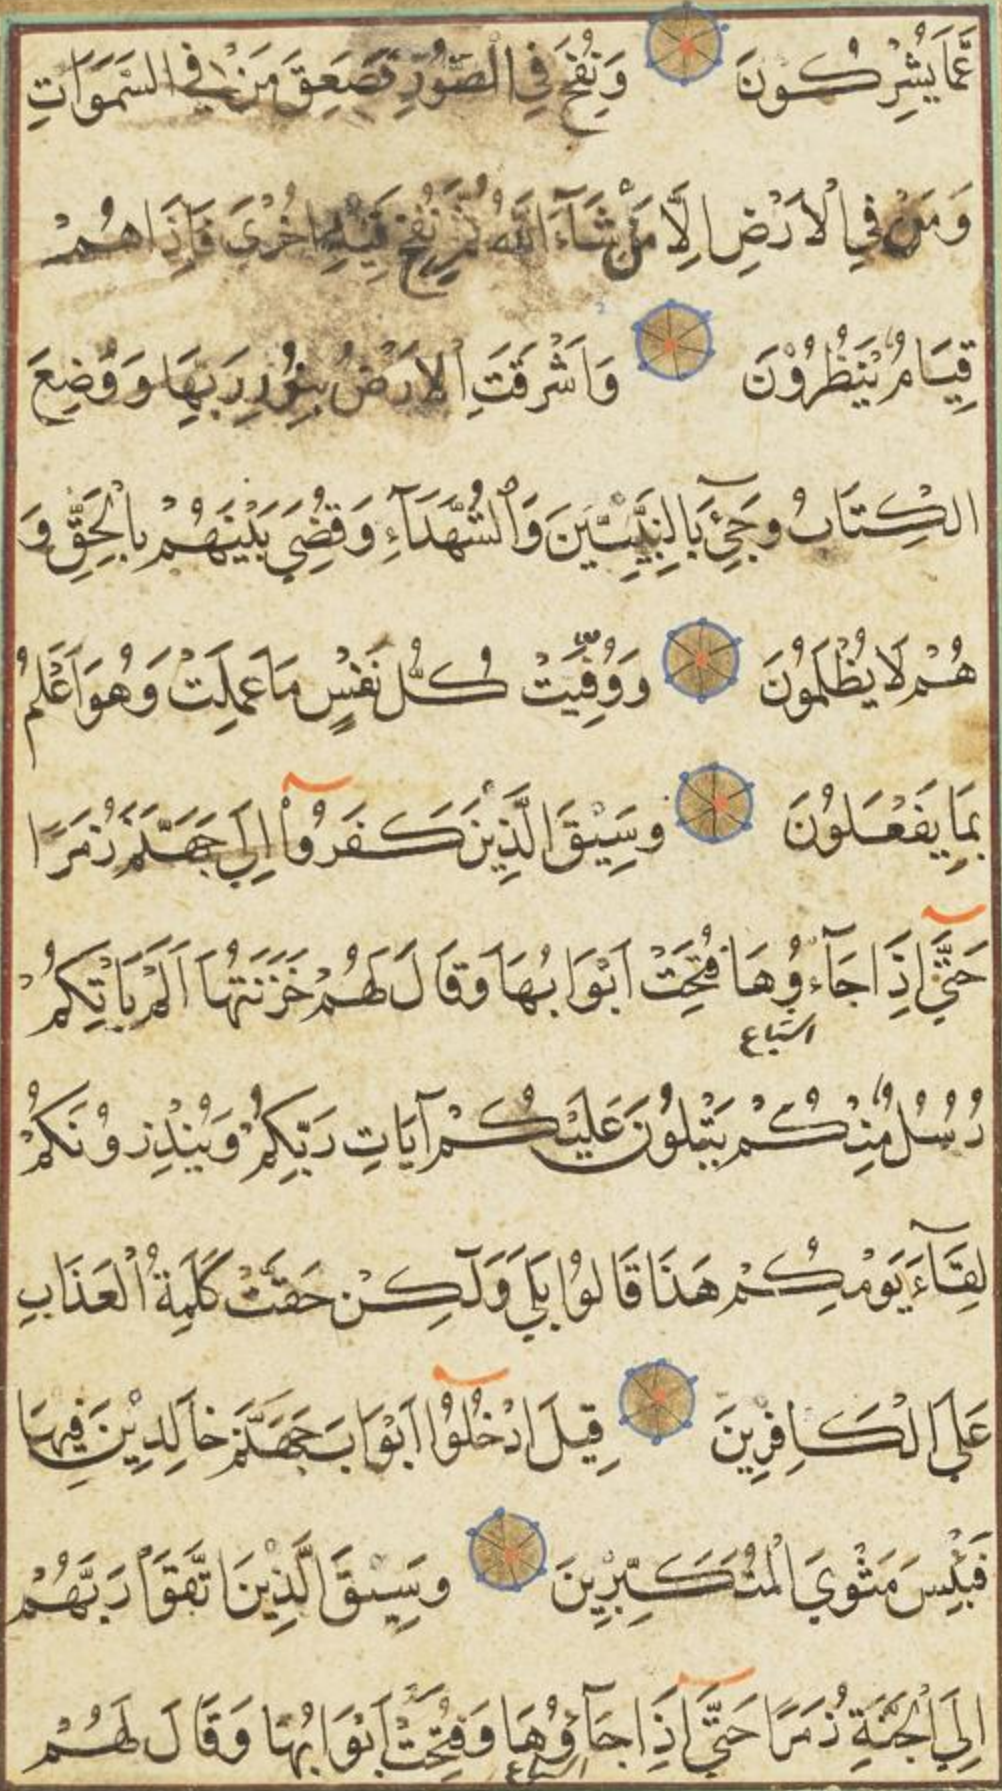 عَمَّا يُشْرِكُونَ وَنُفِخَ فِي الصُّورِ فَصَعِقَ مَنْ فِي السَّمَوَاتِ
وَمَنْ فِي الْاَرْضِ اِلَّا مَنْ شَآءَ اللّٰهُ ثُمَّ نُفِخَ فِيْهِ اُخْرٰى فَاِذَا هُمْ
قِيَامٌ يَنْظُرُوْنَ وَاَشْرَقَتِ الْاَرْضُ بِنُوْرِ رَبِّهَا وَوُضِعَ
الْكِتَابُ وَجِيْٓءَ بِالنَّبِيِّيْنَ وَالشُّهَدَآءِ وَقُضِيَ بَيْنَهُمْ بِالْحَقِّ وَ
هُمْ لَا يُظْلَمُوْنَ وَوُفِّيَتْ كُلُّ نَفْسٍ مَا عَمِلَتْ وَهُوَ اَعْلَمُ
بِمَا يَفْعَلُوْنَ وَسِيْقَ الَّذِيْنَ كَفَرُوْٓا اِلٰى جَهَنَّمَ زُمَرًا
حَتّٰٓى اِذَا جَآءُوْهَا فُتِحَتْ اَبْوَابُهَا وَقَالَ لَهُمْ خَزَنَتُهَا اَلَمْ يَاْتِكُمْ
اشباع
رُسُلٌ مِنْكُمْ يَتْلُوْنَ عَلَيْكُمْ آيَاتِ رَبِّكُمْ وَيُنْذِرُوْنَكُمْ
لِقَآءَ يَوْمِكُمْ هَذَا قَالُوْا بَلٰى وَلٰكِنْ حَقَّتْ كَلِمَةُ الْعَذَابِ
عَلَى الْكَافِرِيْنَ قِيْلَ ادْخُلُوْٓا اَبْوَابَ جَهَنَّمَ خَالِدِيْنَ فِيْهَا
فَبِئْسَ مَثْوَى الْمُتَكَبِّرِيْنَ وَسِيْقَ الَّذِيْنَ اتَّقَوْا رَبَّهُمْ
اِلَى الْجَنَّةِ زُمَرًا حَتّٰٓى اِذَا جَآءُوْهَا وَفُتِحَتْ اَبْوَابُهَا وَقَالَ لَهُمْ
اشباع